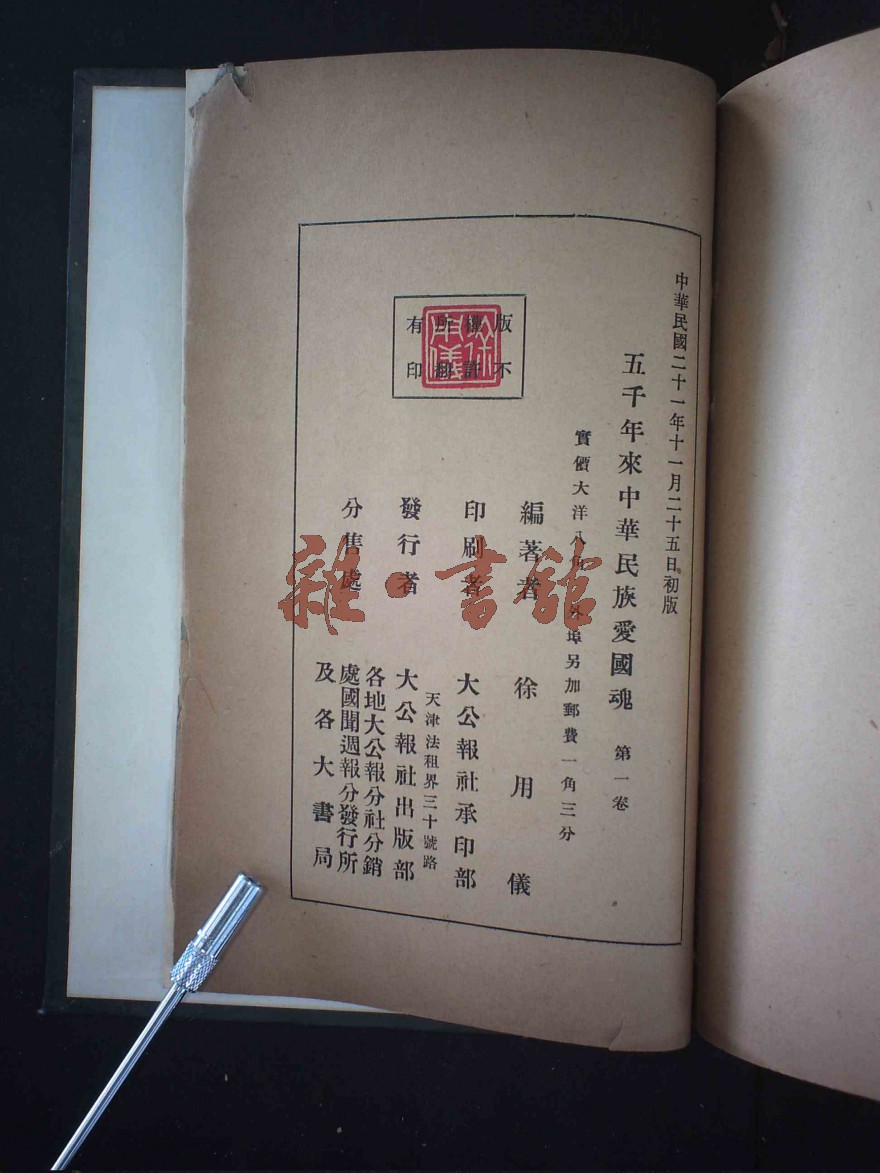 中華民國二十一年十一月二十五日初版
五千年來中華民族愛國魂 第一卷
實價大洋八角 外埠另加郵費一角三分
版權所有
不許翻印
徐用儀
編著者 徐用儀
印刷者 大公報社承印部
天津法租界三十號路
發行者 大公報社出版部
分售處 各地大公報分社分銷
處國聞週報分發行所
及各大書局
雜·書館